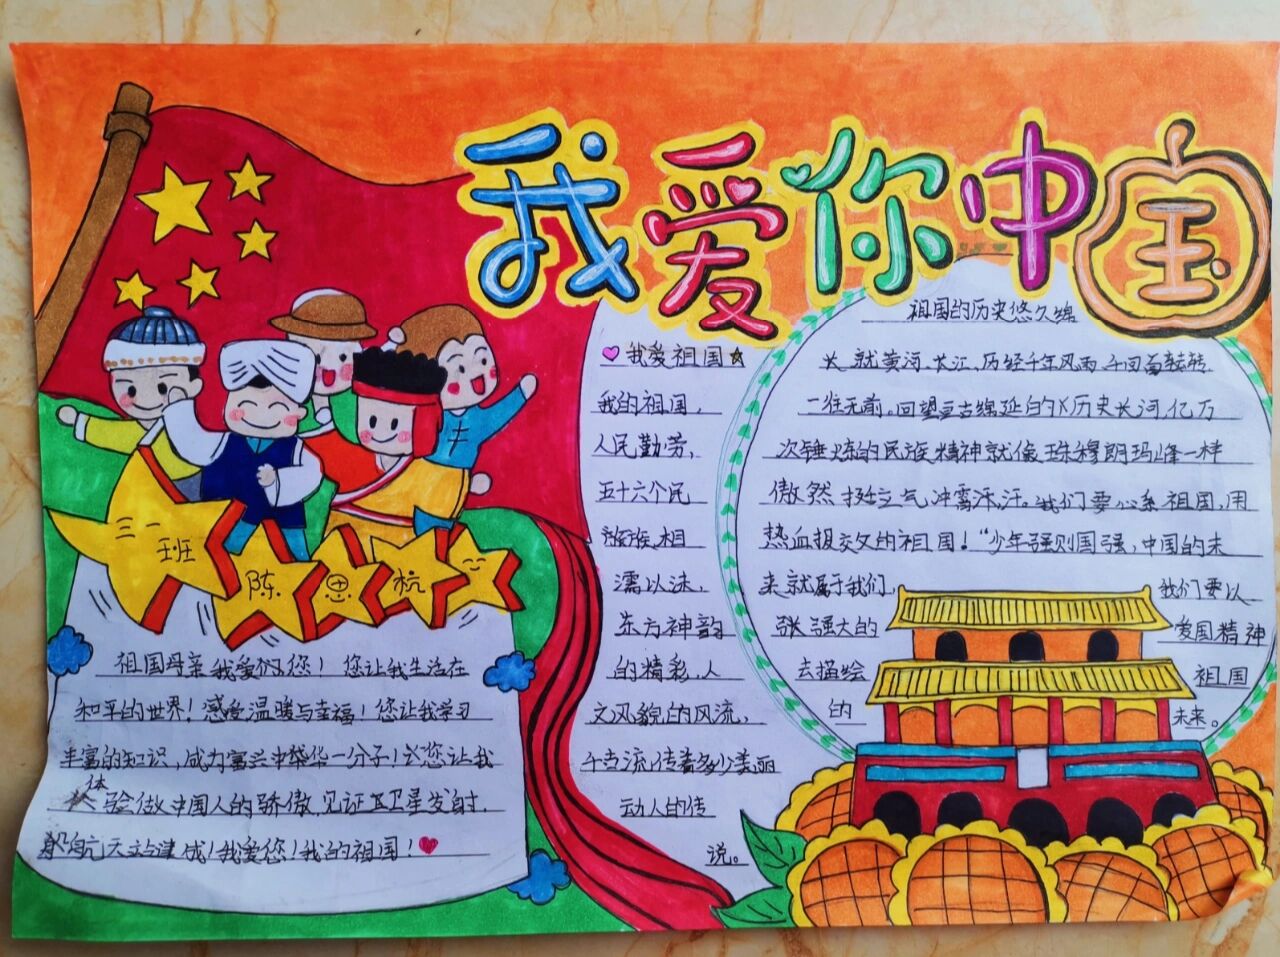 我爱你中国
三一班
陈思杭
祖国母亲我爱您！您让我生活在
和平的世界！感受温暖与幸福！您让我学习
丰富的知识，成为中华一分子！您让我
体验做中国人的骄傲，见证卫星发射，
航天立建成！我爱您！我的祖国！
我爱祖国
我的祖国，
人民勤劳，
五十六个民
族，相
濡以沫，
东方神韵
的精彩，人
文风貌的风流，
千古流传着多少美丽
动人的传
说。
祖国的历史悠久绵
长就黄河、长江，历经千年风雨千回百转
一往无前。回望亘古绵延的历史长河亿万
次锤炼的民族精神就像珠穆朗玛峰一样
傲然挺立气冲霄汉。我们要心系祖国，用
热血报效的祖国！“少年强则国强，中国的未
来就属于我们， 我们要以
张强大的 爱国精神
去描绘 祖国
的 未来。